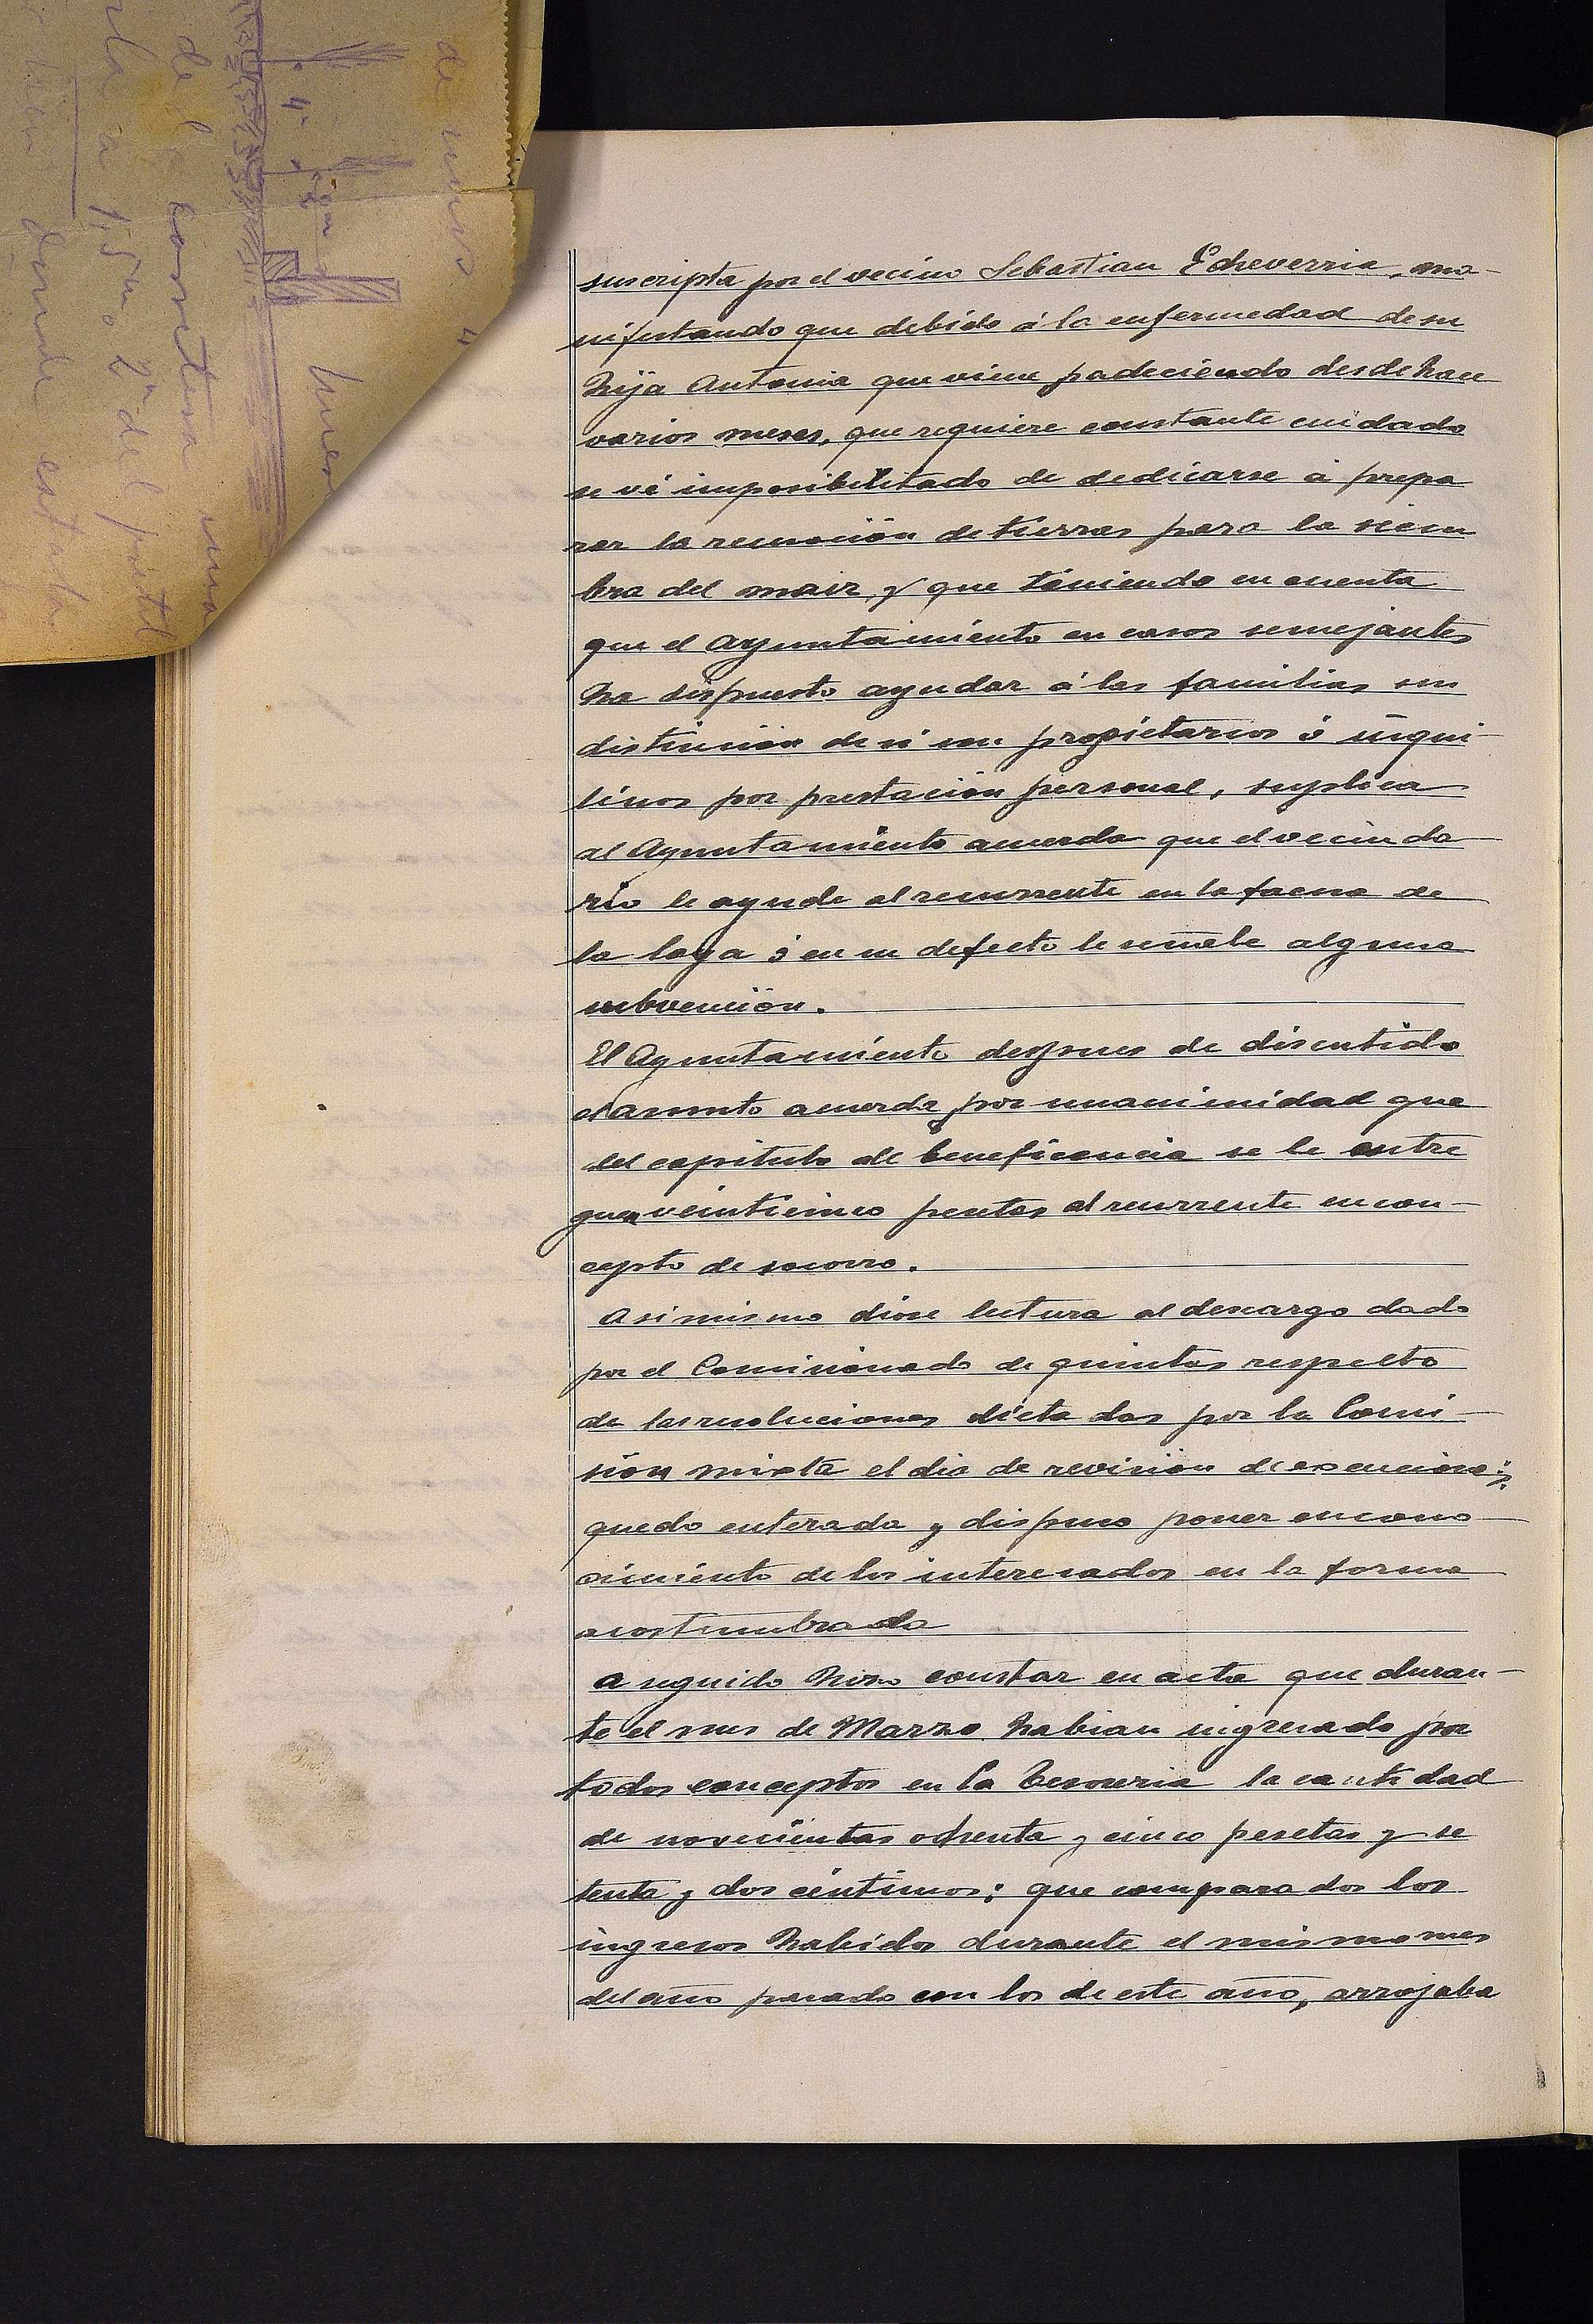 suscripta por el vecino Sebastian Echeverria, ma-
nifestando que debido á la enfermedad de su
hija Antonia que viene padeciendo desde hace
varios meses, que requiere constante cuidado
se vé imposibilitado de dedicarse á prepa
rar la remoción de tierras para la siem
bra del maiz, y que teniendo en cuenta
que el Ayuntamiento en casos semejantes
ha dispuesto ayudar á las familias sin
distinción de si son propietarios ó inqui-
linos por prestación personal, suplica
al Ayuntamiento acuerda que el vecinda
rio le ayude al recurrente en la faena de
la laya ó en su defecto le señale alguna
subvención.
El Ayuntamiento despues de discutido
el asunto acuerda por unanimidad que
del capitulo de beneficencia se le entre
guen veinticinco pesetas al recurrente en con-
cepto de socorro.
Asi mismo dióse lectura al descargo dado
por el Comisionado de quintas respecto
de las resoluciones dictadas por la Comi-
sión mixta el dia de revisión de exenciones;
quedo enterada y dispuso poner en cono-
cimiento de los interesados en la forma
acostumbrada
A seguido hizo constar en acta que duran-
te el mes de Marzo habian ingresado por
todos conceptos en la Tesoreria la cantidad
de novecientas ochenta y cinco pesetas y se
tenta y dos céntimos: que comparados los
ingresos habidos durante el mismo mes
del año pasado con los de este año, arrojaba
de
4
de la carretera una
1,5m o 2m del
donde